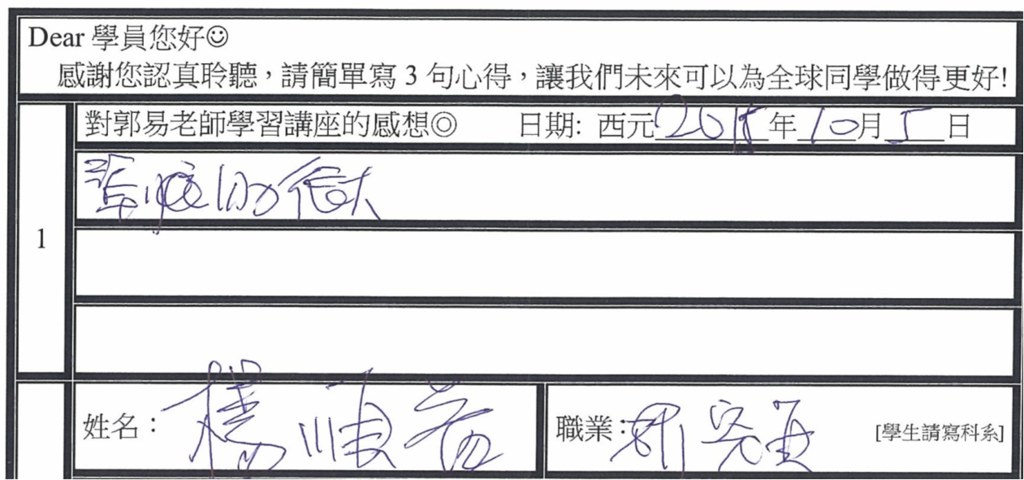 Dear 學員您好☺
感謝您認真聆聽，請簡單寫 3 句心得，讓我們未來可以為全球同學做得更好!
1
對郭易老師學習講座的感想◎ 日期: 西元2018年10月5日
很大
姓名：楊順
職業： [學生請寫科系]